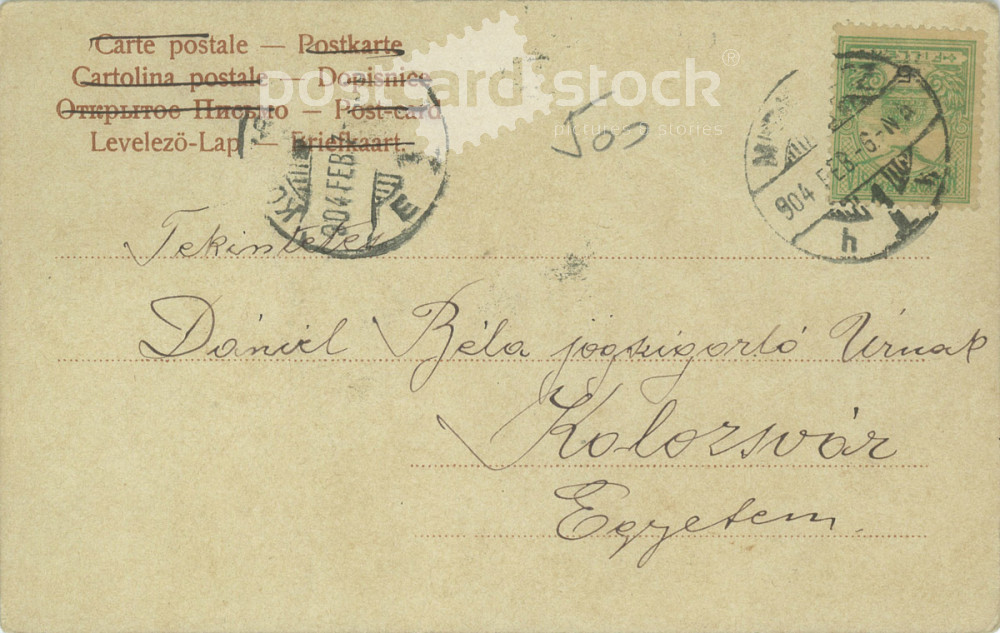 Carte postale — Postkarte
Cartolina postale — Dopisnice
Открытое Письмо — Post-card
Levelező-Lap — Briefkaart.
postcard stock®
pictures & stories
500
904 FEB
E
904 FEB. 6-N
h
Tekintetes
Dániel Béla jogszigorló Úrnak
Kolozsvár
Egyetem.